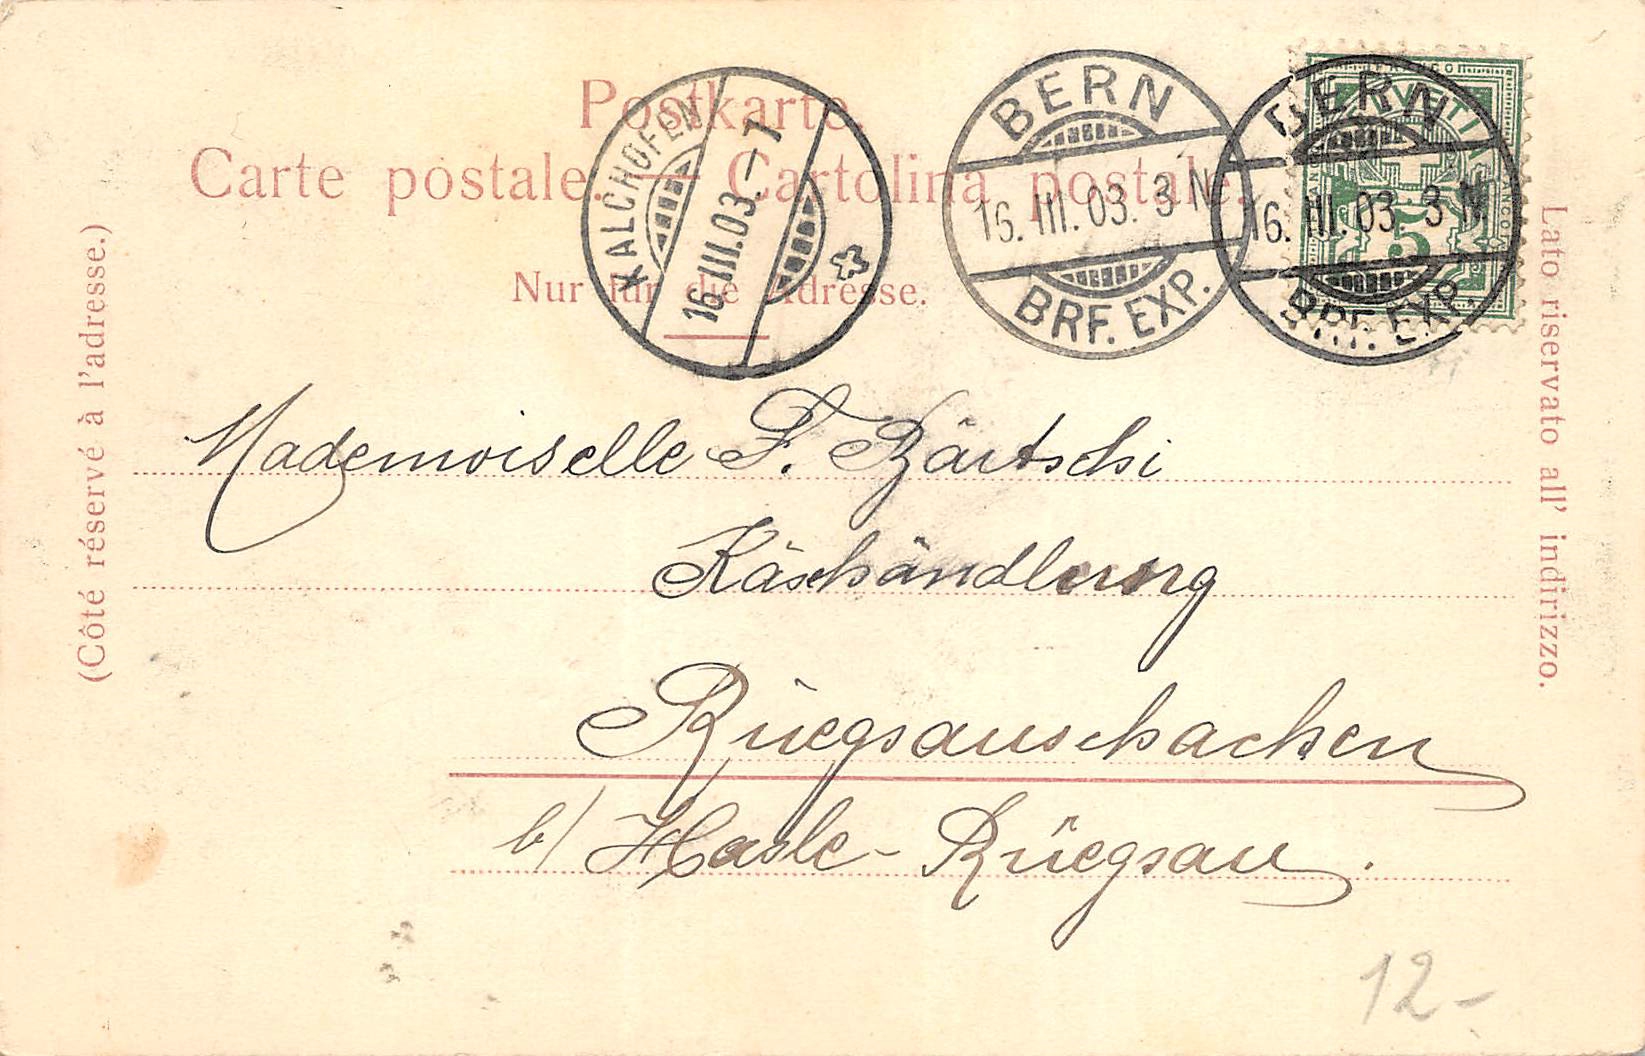 Postkarte.
Carte postale. — Cartolina postale.
Nur für die Adresse.
(Côté réservé à l'adresse.)
Lato riservato all' indirizzo.
KALCHOFEN
16.III.03.–7
BERN
16.III.03. 3 N
BRF. EXP.
BERN
16.III.03 3 N
BRF. EXP.
FRANCO
HELVETIA
5
Mademoiselle F. Bärtschi
Käsehandlung
Rüegsauschachen
b/ Hasle-Rüegsau.
12–